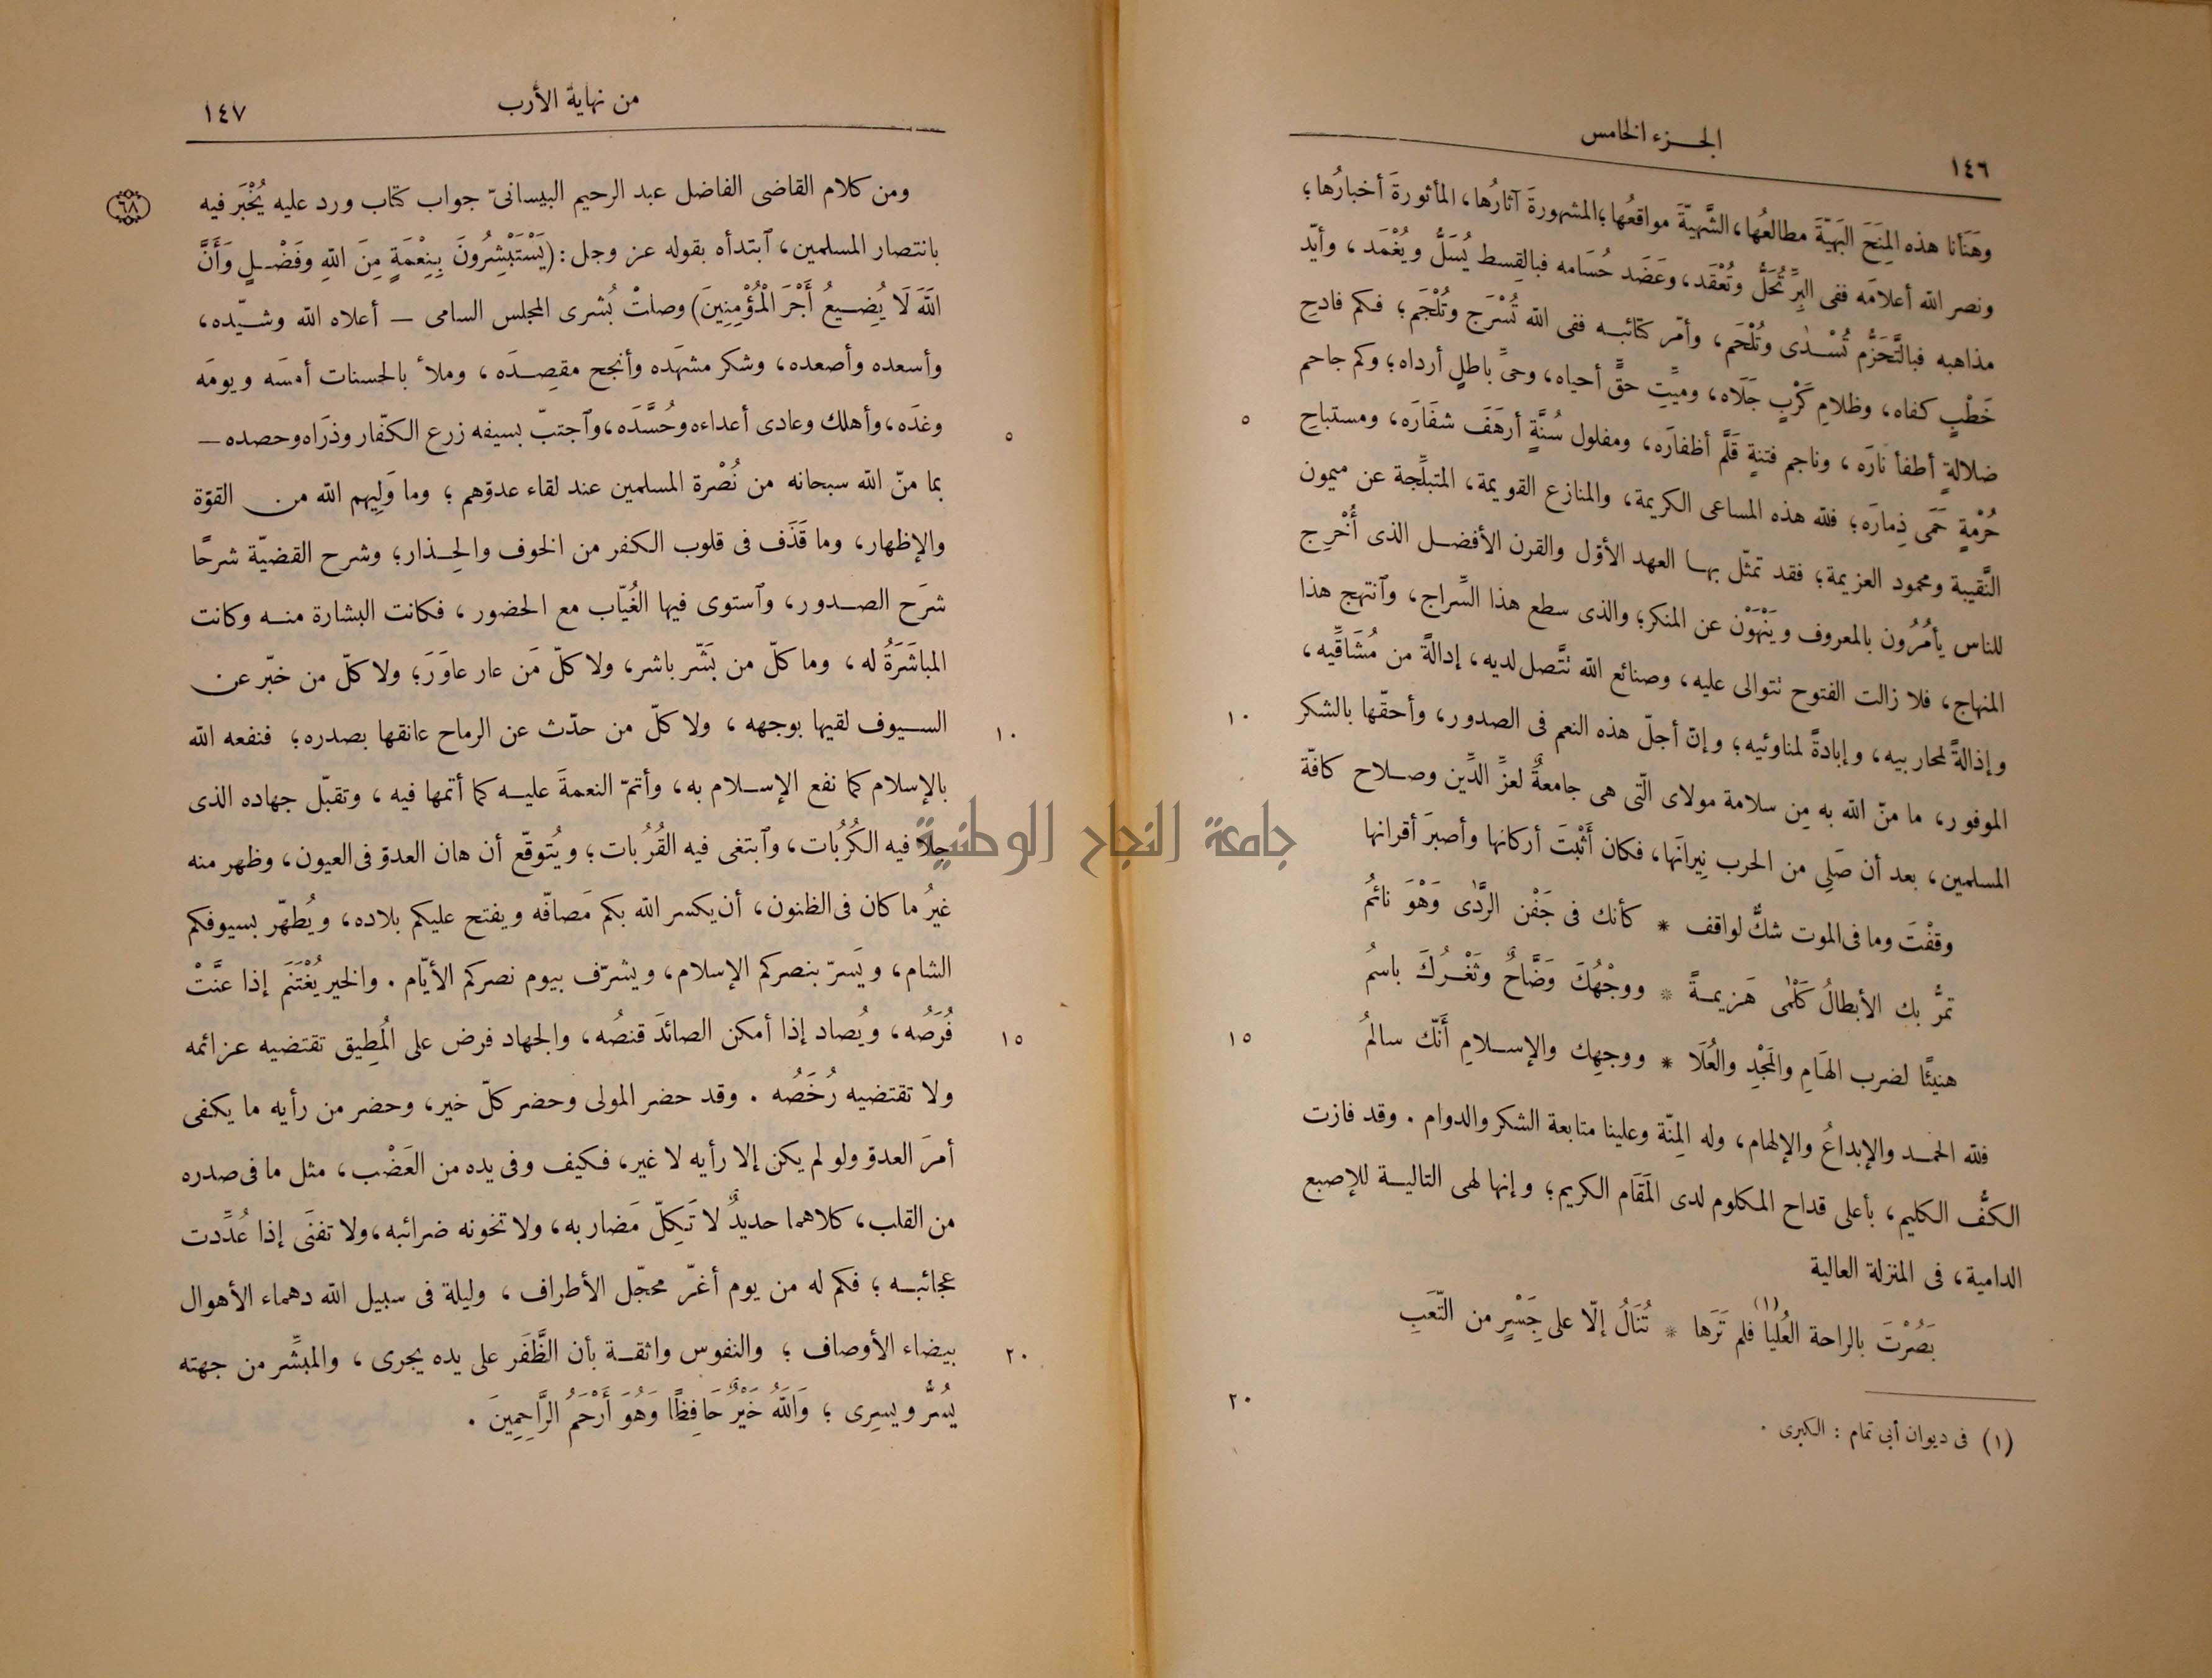 ١٤٦
الجزء الخامس
وهَنَأنا هذه المِنَحَ البَهيّةَ مطالعُها، الشَّهيّةَ مواقعُها؛ المشهورةَ آثارُها، المأثورةَ أخبارُها؛
ونصر الله أعلامَه ففى البِرِّ تُحَلُّ وتُعْقَد، وعَضَد حُسَامه فبالقِسط يُسَلُّ ويُغْمَد، وأيّد
مذاهبه فبالتَّحَزُّم تُسْدٰى وتُلْحَم، وأمّر كتائبه ففى الله تُسْرَج وتُلْجَم؛ فكم فادحِ
خَطْبٍ كفاه، وظلامِ كَرْبٍ جَلَاه، وميِّتِ حقٍّ أحياه، وحىِّ باطلٍ أرداه؛ وكم جاحم
٥
ضلالةٍ أطفأ نارَه، وناجم فتنةٍ قَلَّم أظفارَه، ومفلول سُنَّةٍ أرهَفَ شفَارَه، ومستباحِ
حُرْمةٍ حَمَى ذِمارَه؛ فلله هذه المساعى الكريمة، والمنازع القويمة، المتبلِّجة عن ميمون
النَّقيبة ومحمود العزيمة؛ فقد تمثّل بها العهد الأوّل والقرن الأفضل الذى أُخْرِج
للناس يأمُرُون بالمعروف ويَنْهَوْن عن المنكر؛ والذى سطع هذا السِّراج، وٱنتهج هذا
المنهاج، فلا زالت الفتوح تتوالى عليه، وصنائع الله تتَّصل لديه، إدالةً من مُشَاقِّيه،
وإذالةً لمحاربيه، وإبادةً لمناوئيه؛ وإنّ أجلّ هذه النعم فى الصدور، وأحقّها بالشكر
١٠
الموفور، ما منّ الله به مِن سلامة مولاى الّتى هى جامعةٌ لعزِّ الدِّين وصلاح كافّة
المسلمين، بعد أن صَلِى من الحرب نِيرانَها، فكان أَثْبتَ أركانها وأصبرَ أقرانها
وقفْتَ وما فى الموت شكٌّ لواقف * كأنك فى جَفْن الرَّدٰى وَهْوَ نائمُ
تمرُّ بك الأبطالُ كَلْمٰى هَزيمةً * ووجْهُكَ وَضَّاحٌ وثَغْرُكَ باسمُ
هنيئًا لضرب الهَامِ والمَجْدِ والعُلَا * ووجهِك والإسلامِ أنّك سالمُ
١٥
فلله الحمد والإبداعُ والإلهام، وله المِنّة وعلينا متابعة الشكر والدوام . وقد فازت
الكفُّ الكليم، بأعلى قداح المكلوم لدى المَقَام الكريم؛ وإنها لهى التالية للإصبع
الدامية، فى المنزلة العالية
بَصُرْتَ بالراحة العُليا (١) فلم تَرَها * تُنَالُ إلّا على جِسْرٍ من التّعَبِ
٢٠
(١) فى ديوان أبى تمام : الكبرى .
من نهاية الأرب
١٤٧
ومن كلام القاضى الفاضل عبد الرحيم البيسانىّ جواب كتاب ورد عليه يُخْبَر فيه
٦٨
بانتصار المسلمين، ٱبتدأه بقوله عز وجل : (يَسْتَبْشِرُونَ بِنِعْمَةٍ مِنَ اللهِ وفَضْلٍ وَأَنَّ
اللهَ لَا يُضِيعُ أَجْرَ الْمُؤْمِنِينَ) وصلتْ بُشرى المجلس السامى – أعلاه الله وشيّده،
وأسعده وأصعده، وشكر مشهَده وأنجح مقصِدَه، وملأ بالحسنات أمسَه ويومَه
وغدَه، وأهلك وعادى أعداءه وحُسَّدَه، وٱجتبّ بسيفه زرع الكفّار وذَراه وحصده –
٥
بما منّ الله سبحانه من نُصْرة المسلمين عند لقاء عدوّهم؛ وما وَلِيهم الله من القوّة
والإظهار، وما قَذَف فى قلوب الكفر من الخوف والحِذار؛ وشرح القضيّة شرحًا
شرَح الصدور، وٱستوى فيها الغُيّاب مع الحضور، فكانت البشارة منه وكانت
المباشَرَةُ له، وما كلّ من بَشّر باشر، ولا كلّ مَن عار عاوَرَ؛ ولا كلّ من خبّر عن
السيوف لقيها بوجهه، ولا كلّ من حدّث عن الرماح عانقها بصدره؛ فنفعه الله
١٠
بالإسلام كما نفع الإسلام به، وأتمّ النعمةَ عليه كما أتمها فيه، وتقبّل جهاده الذى
جلا فيه الكُرُبات، وٱبتغى فيه القُرُبات؛ ويُتوقّع أن هان العدوّ فى العيون، وظهر منه
غيرُ ما كان فى الظنون، أن يكسر الله بكم مَصافّه ويفتح عليكم بلاده، ويُطهّر بسيوفكم
الشام، ويَسرّ بنصركم الإسلام، ويشرّف بيوم نصركم الأيّام . والخير يُغْتَنَم إذا عنَّتْ
فُرَصُه، ويُصاد إذا أمكن الصائدَ قنصُه، والجهاد فرض على المُطِيق تقتضيه عزائمه
١٥
ولا تقتضيه رُخَصُه . وقد حضر المولى وحضر كلّ خير، وحضر من رأيه ما يكفى
أمرَ العدوّ ولو لم يكن إلا رأيه لا غير، فكيف وفى يده من العَضْب، مثل ما فى صدره
من القلب، كلاهما حديدٌ لا تَكِلّ مَضاربه، ولا تخونه ضرائبه، ولا تفنَى إذا عُدِّدت
عجائبه؛ فكم له من يوم أغرّ محجّل الأطراف، وليلة فى سبيل الله دهماء الأهوال
بيضاء الأوصاف؛ والنفوس واثقة بأن الظَّفَر على يده يجرى، والمبشِّر من جهته
٢٠
يُسُرُّ ويسِرى؛ وَاللهُ خَيْرٌ حَافِظًا وَهُوَ أَرْحَمُ الرَّاحِمِينَ .
جامعة النجاح الوطنية